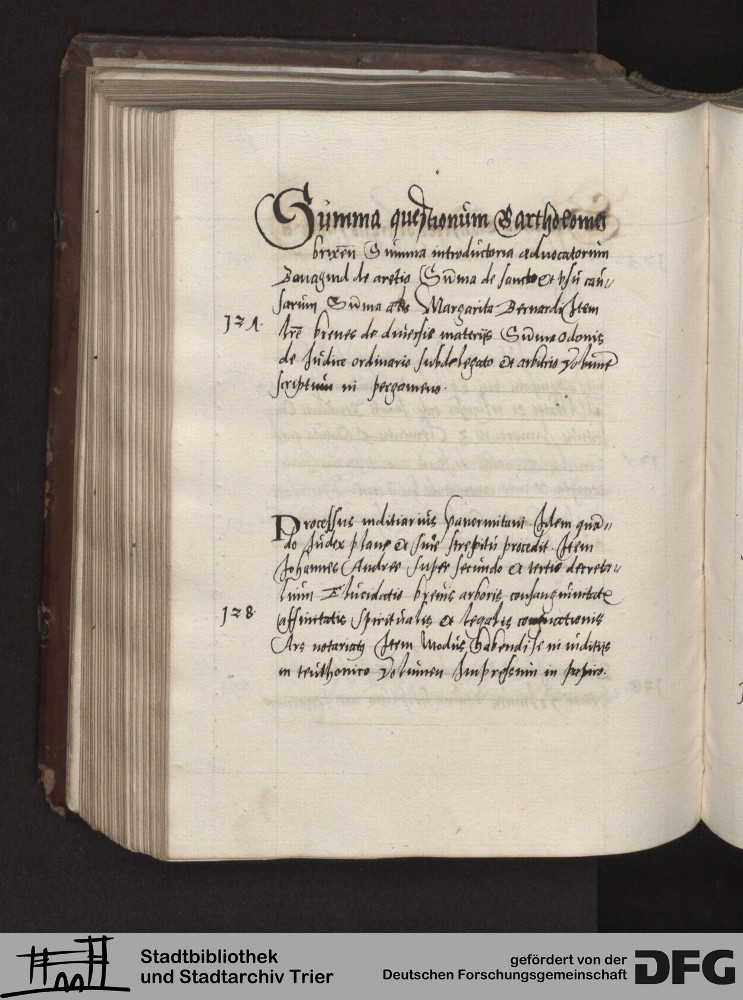 Summa questionum Bartholomei
brixen Summa introductoria aduocatorum
de aretio Suma de facto et vsu cau-
sarum Suma Margarita Bernardi Item
127.
lre breues de diuersis materijs Suma odonis
de Iudice ordinario subdelegato et arbitrio Volume
scriptum in pergameno.
Processus iuditiarius panormitani. Idem quan-
do Iudex plane et sine strepitu procedit. Item
Iohannes Andree super secundo et tertio decreta-
lium Elucidatio breuis arboris consanguinitatis
128.
affinitatis spiritualis et legalis
Ars notariatus Item modus habendi se in iuditijs
in teuthonico Volumen Impressum in papiro.
Stadtbibliothek
und Stadtarchiv Trier
gefördert von der
Deutschen Forschungsgemeinschaft
DFG